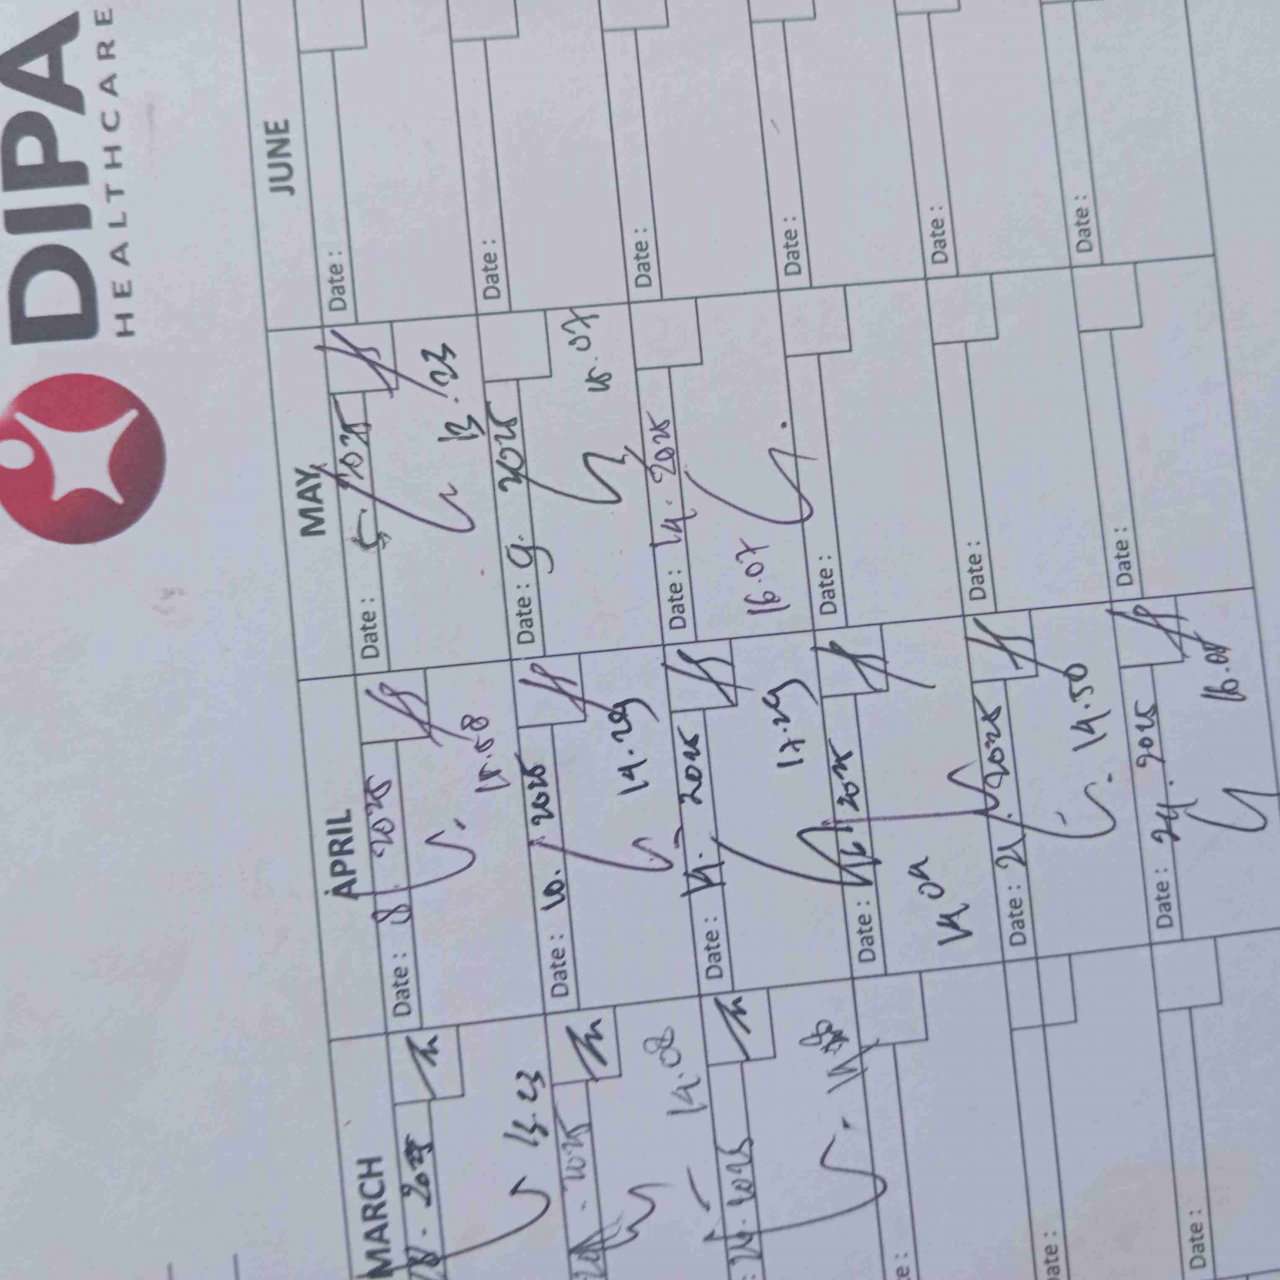 DIPA
HEALTHCARE
MARCH
APRIL
MAY
JUNE
2025
13.23
2025
14.08
2025
Date :
Date :
Date : 8. 2025
15.58
Date : 10. 2025
14.29
Date : 14. 2025
17.29
Date : 2025
14.04
Date : 21. 2025
14.50
Date : 24. 2025
16.08
Date : 5. 2025
13.23
Date : 9. 2025
15.07
Date : 14. 2025
16.07
Date :
Date :
Date :
Date :
Date :
Date :
Date :
Date :
Date :